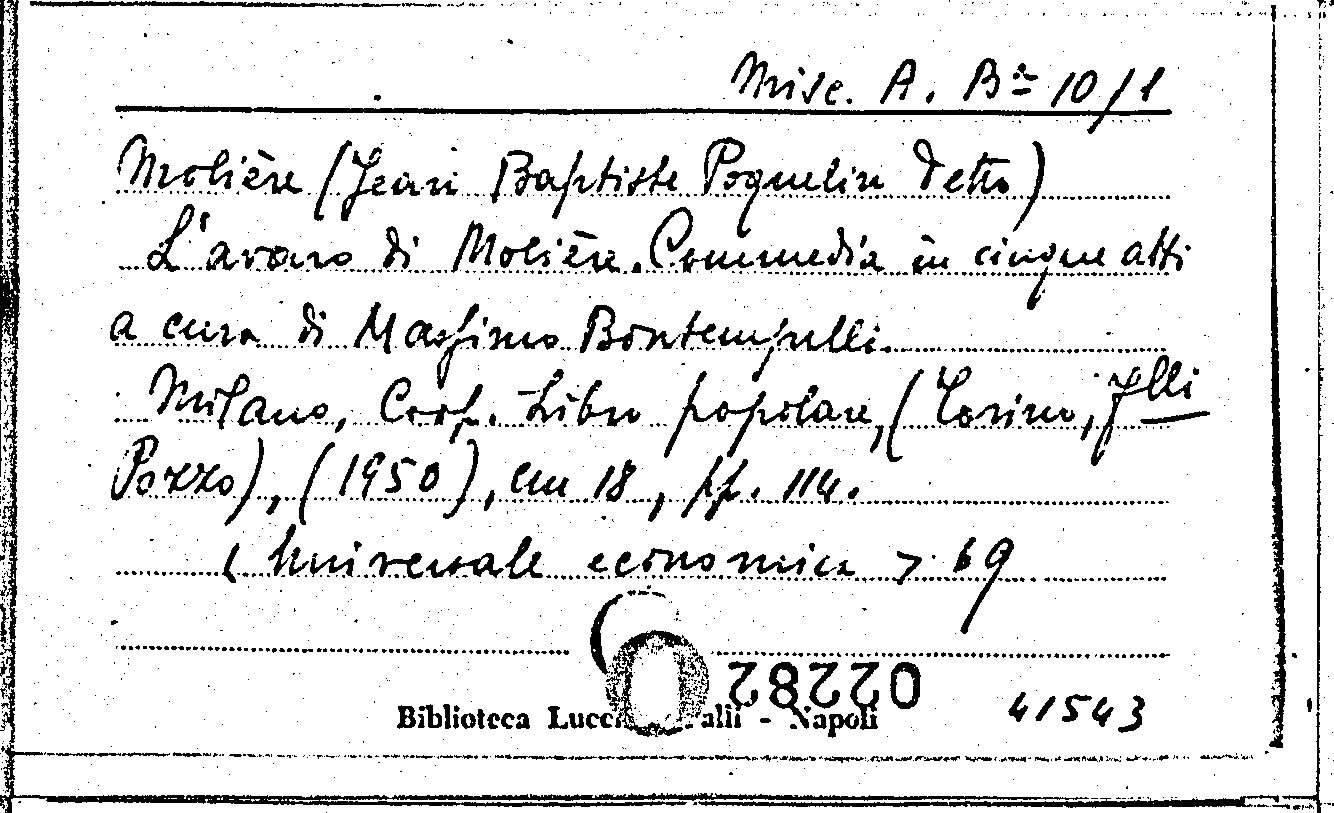 Misc. A. Bª 10/1
Molière (Jean Baptiste Poquelin detto)
L'avaro di Molière. Commedia in cinque atti
a cura di Massimo Bontempelli.
Milano, Coop. Libro popolare, (Torino, Flli
Pozzo), (1950), cm 18, pp. 114.
< Universale economica > 69
02282
41543
Biblioteca - Napoli